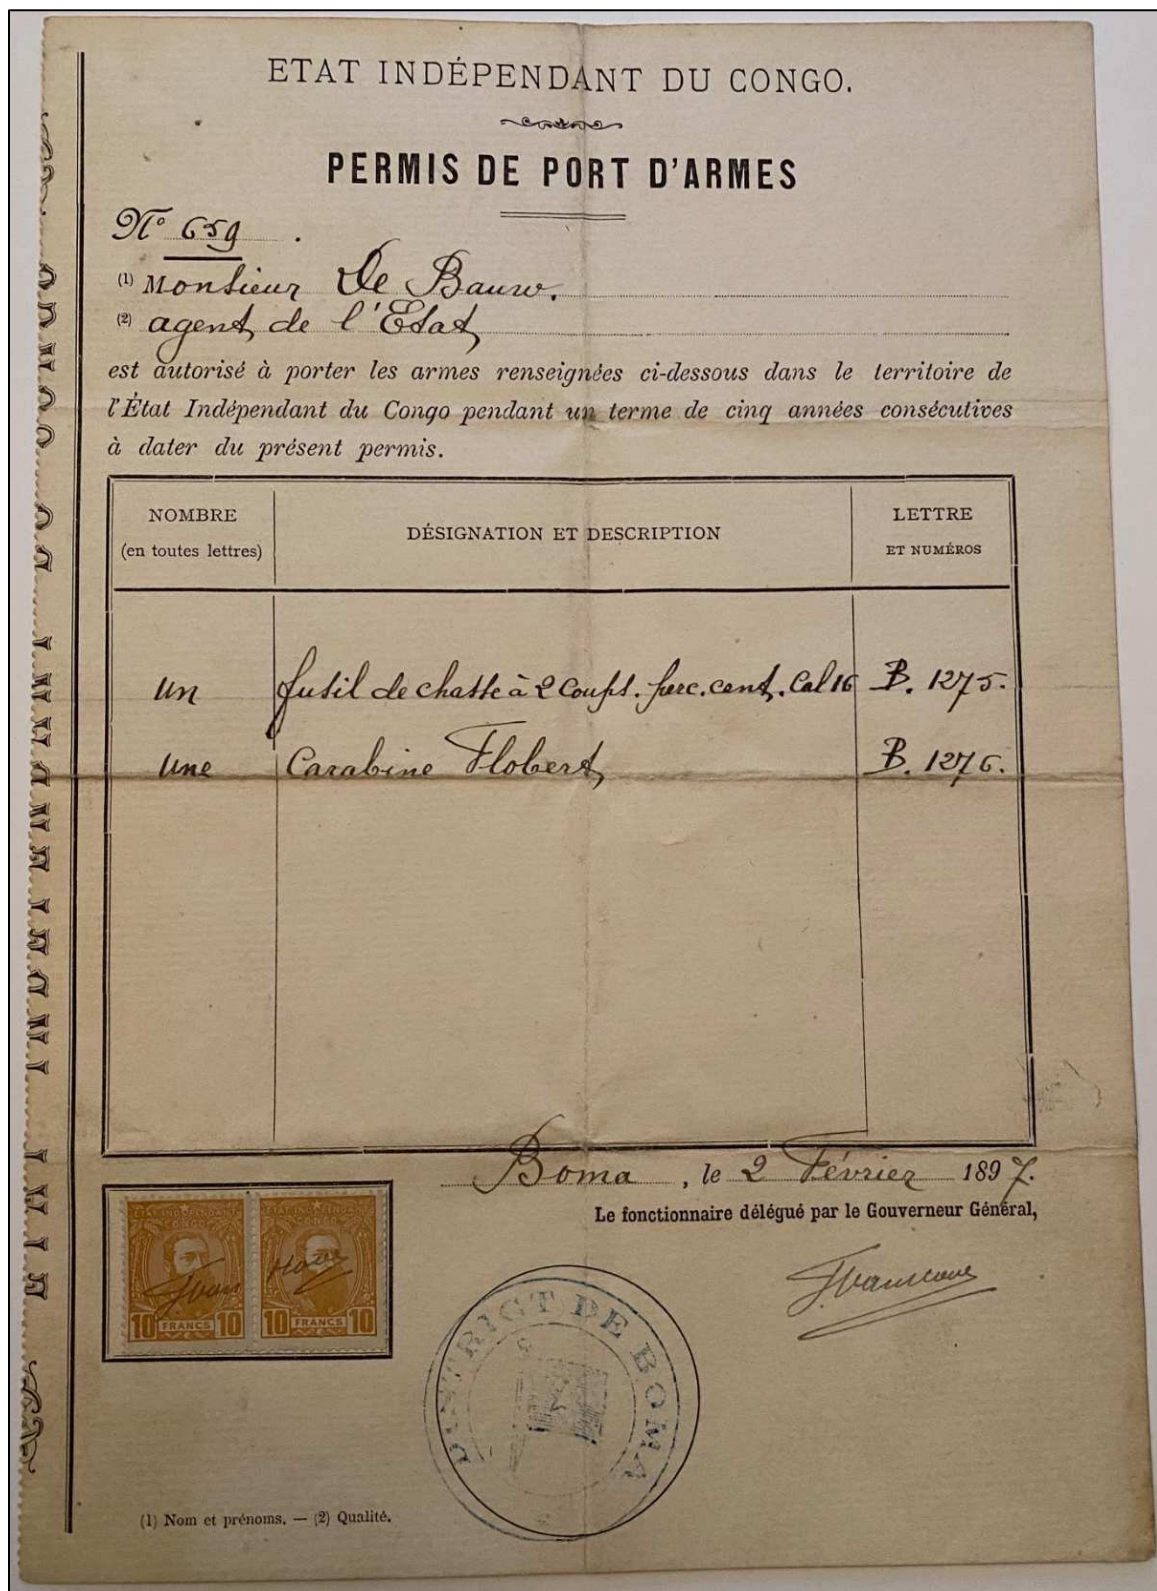 ETAT INDÉPENDANT DU CONGO.
PERMIS DE PORT D'ARMES
N° 659 .
(1) Monsieur De Bauw.
(2) agent de l'Etat
est autorisé à porter les armes renseignées ci-dessous dans le territoire de
l'État Indépendant du Congo pendant un terme de cinq années consécutives
à dater du présent permis.
NOMBRE
(en toutes lettres)
DÉSIGNATION ET DESCRIPTION
LETTRE
ET NUMÉROS
un fusil de chasse à 2 coups. perc. cent. Cal 16 B. 1275.
une Carabine Flobert B. 1276.
Boma, le 2 Février 1897.
Le fonctionnaire délégué par le Gouverneur Général,
ETAT INDEPENDANT ETAT INDEPENDANT
CONGO CONGO
10 FRANCS 10 10 FRANCS 10
DISTRICT DE BOMA
(1) Nom et prénoms. — (2) Qualité.